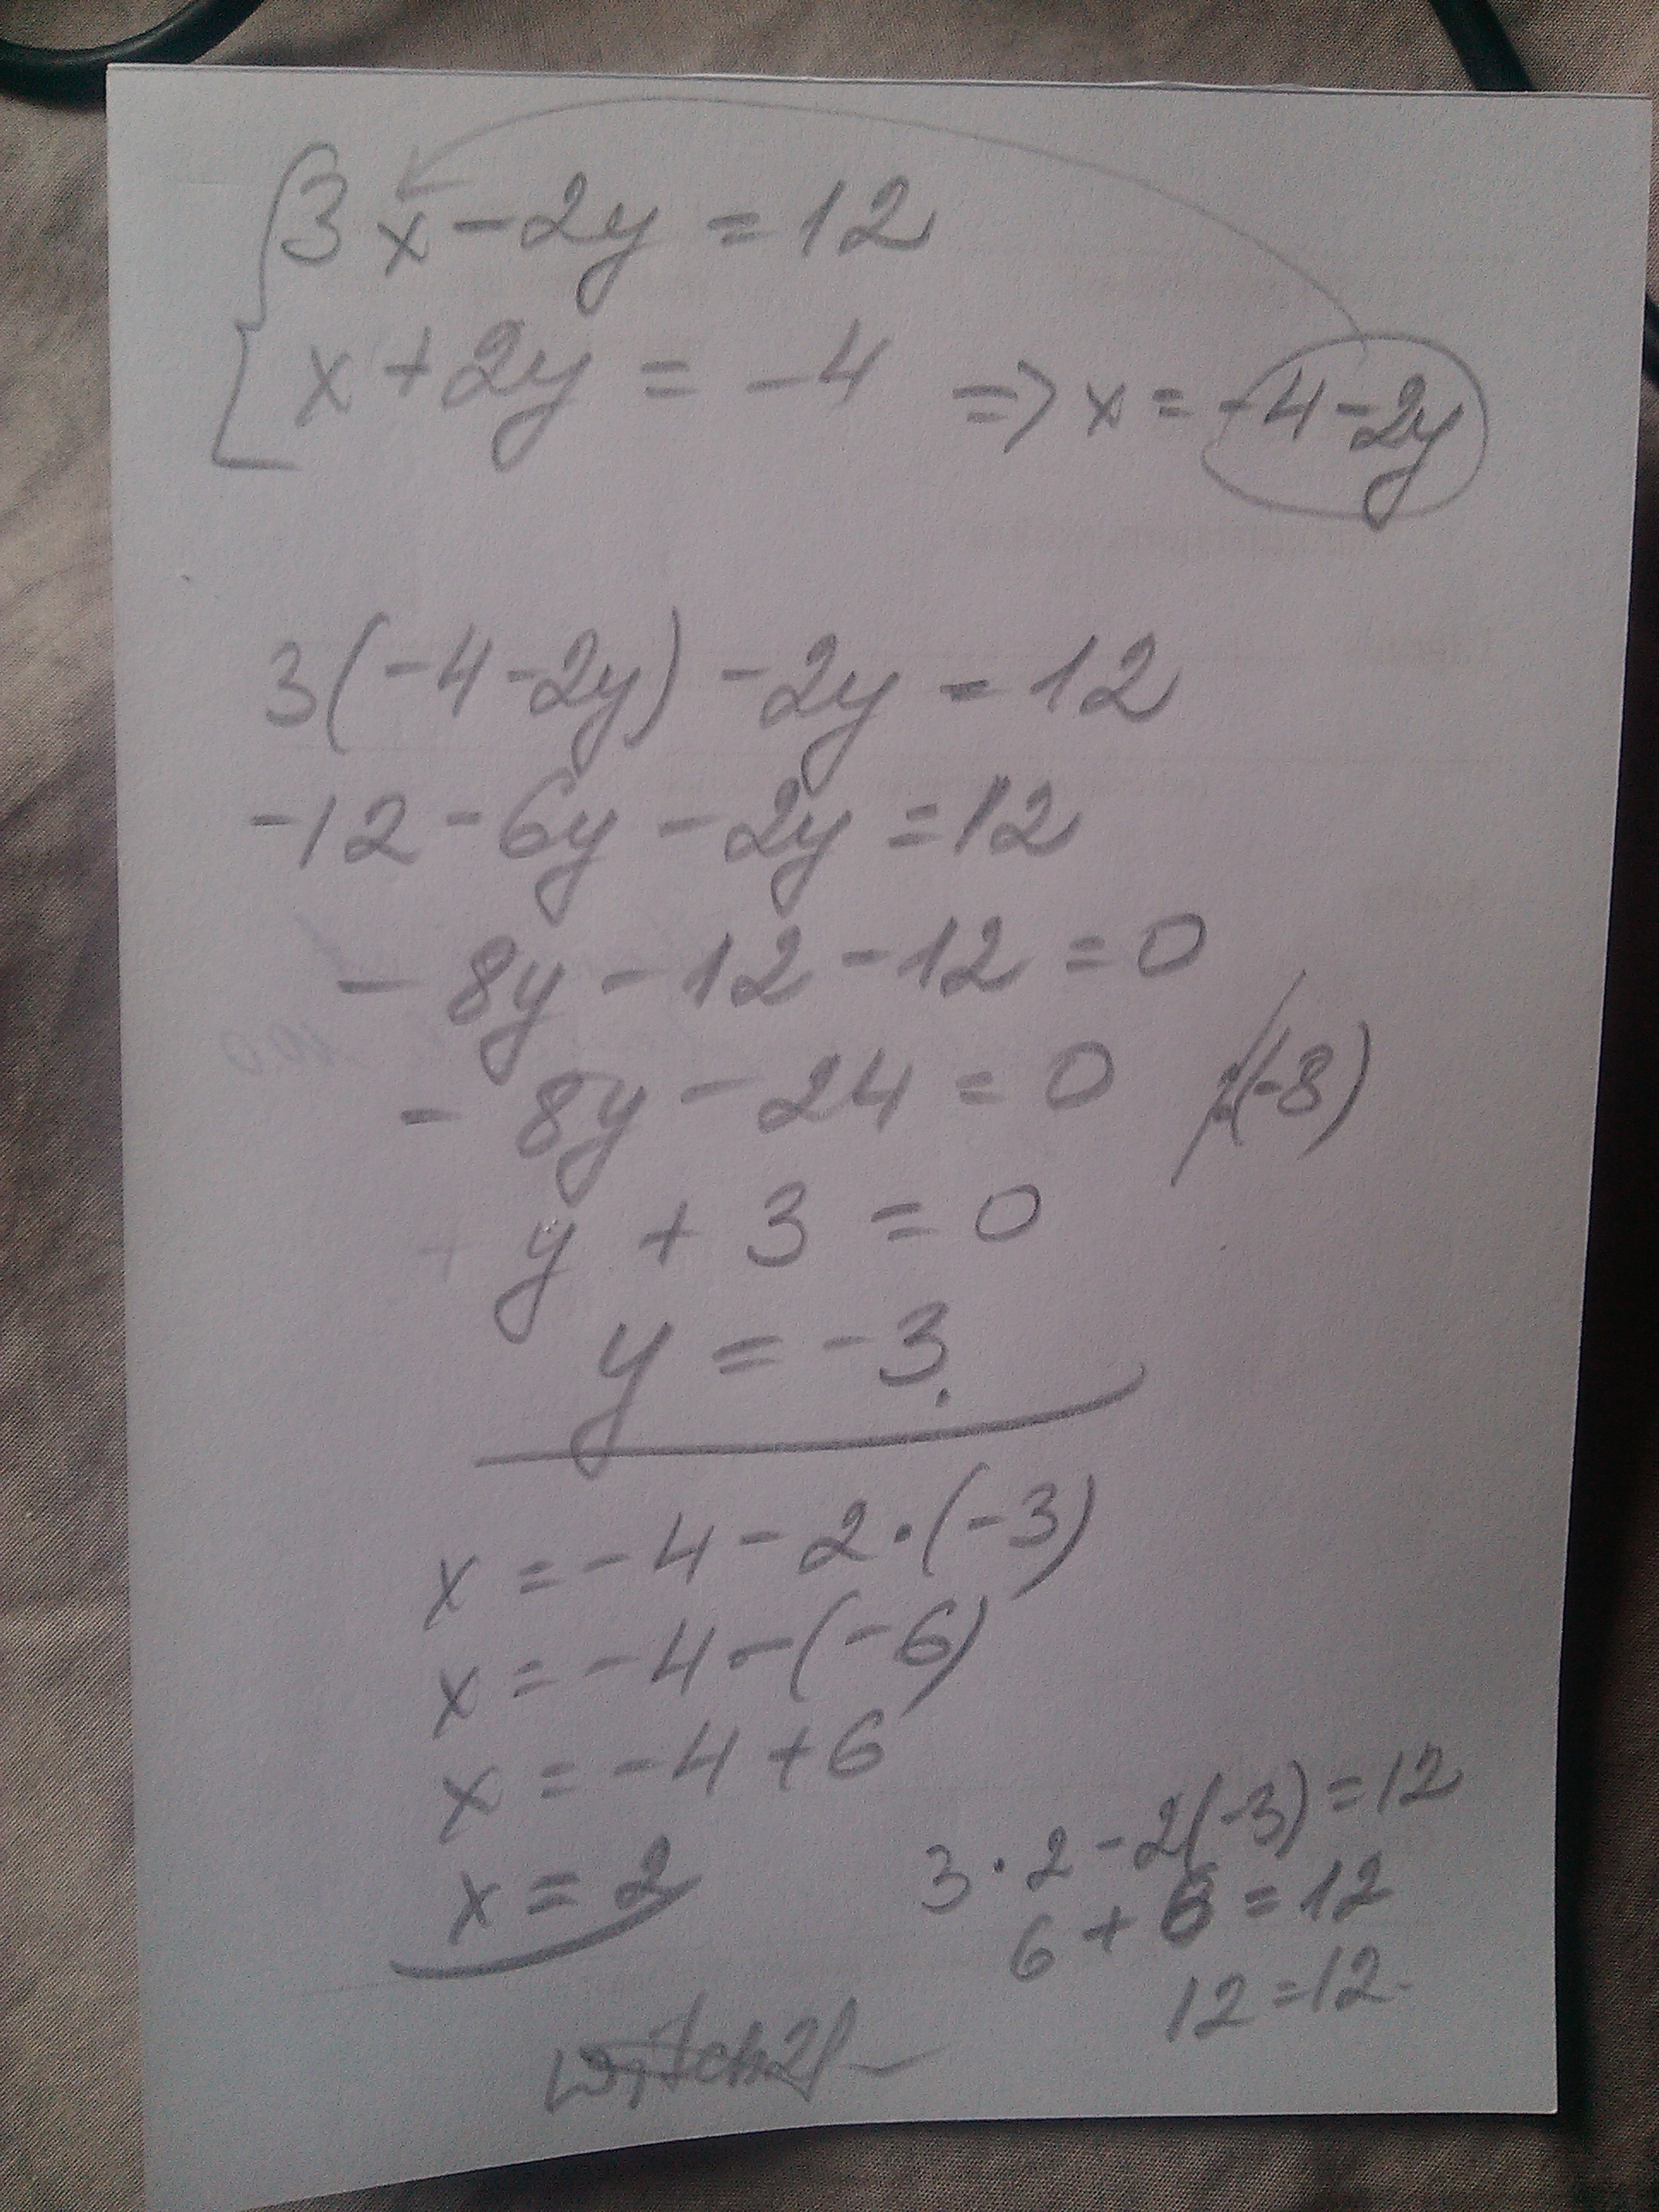 3x-2y=12
x+2y=-4 => x=-4-2y
3(-4-2y)-2y=12
-12-6y-2y=12
-8y-12-12=0
-8y-24=0 /:(-8)
y+3=0
y=-3.
x=-4-2·(-3)
x=-4-(-6)
x=-4+6
x=2
3·2-2(-3)=12
6+6=12
12=12.